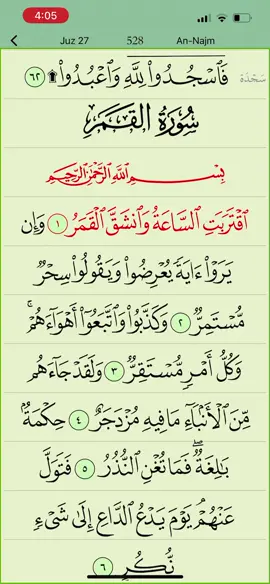 4:05
Juz 27 528 An-Najm
فَٱسْجُدُوا۟ لِلَّهِ وَٱعْبُدُوا۟ ۩ ٦٢ سَجْدَة
سُورَةُ القَمَرِ
بِسْمِ ٱللَّهِ ٱلرَّحْمَٰنِ ٱلرَّحِيمِ
ٱقْتَرَبَتِ ٱلسَّاعَةُ وَٱنشَقَّ ٱلْقَمَرُ ١ وَإِن
يَرَوْا۟ ءَايَةً يُعْرِضُوا۟ وَيَقُولُوا۟ سِحْرٌ
مُّسْتَمِرٌّ ٢ وَكَذَّبُوا۟ وَٱتَّبَعُوٓا۟ أَهْوَآءَهُمْ ۚ
وَكُلُّ أَمْرٍ مُّسْتَقِرٌّ ٣ وَلَقَدْ جَآءَهُم
مِّنَ ٱلْأَنۢبَآءِ مَا فِيهِ مُزْدَجَرٌ ٤ حِكْمَةٌۢ
بَـٰلِغَةٌ ۖ فَمَا تُغْنِ ٱلنُّذُرُ ٥ فَتَوَلَّ
عَنْهُمْ ۘ يَوْمَ يَدْعُ ٱلدَّاعِ إِلَىٰ شَىْءٍ
نُّكُرٍ ٦